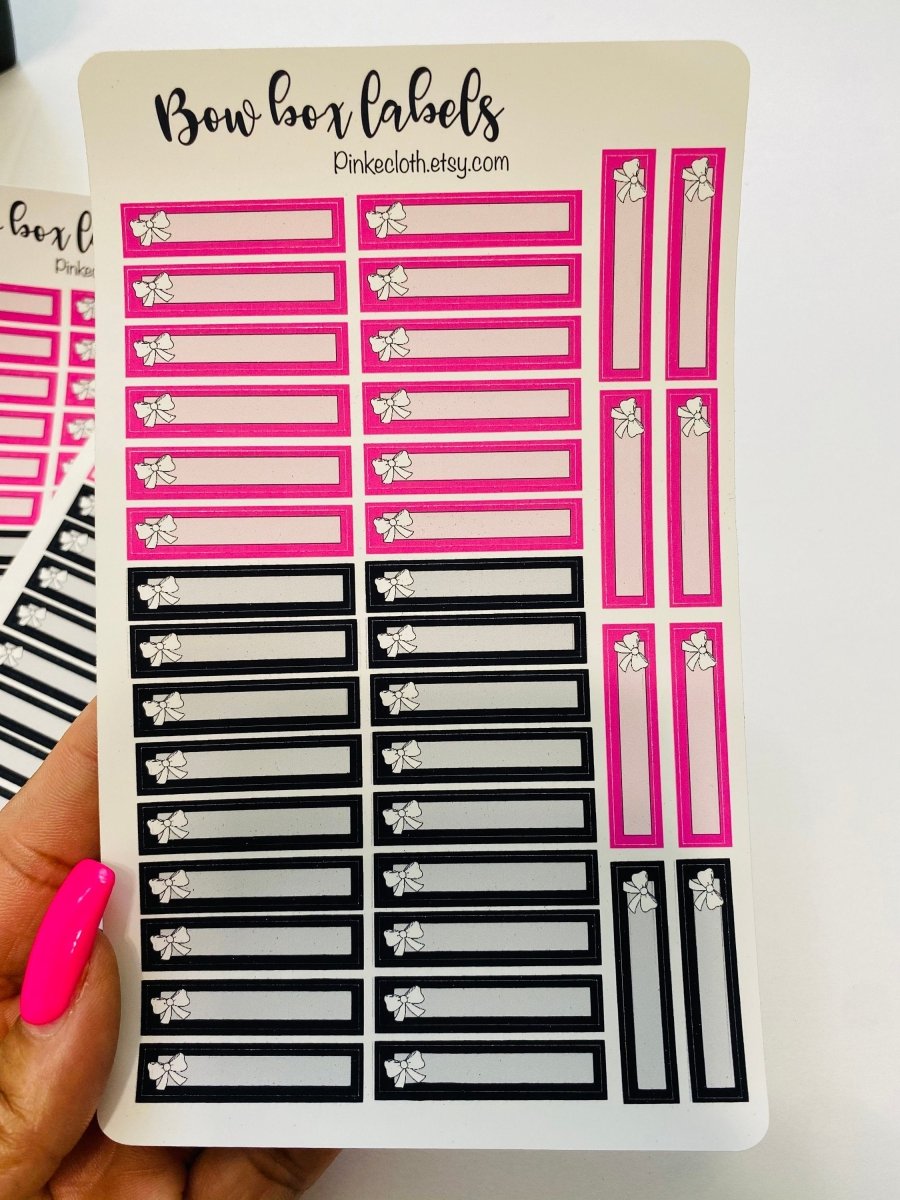 Bow box labels
Pinkecloth.etsy.com
box
Pinke